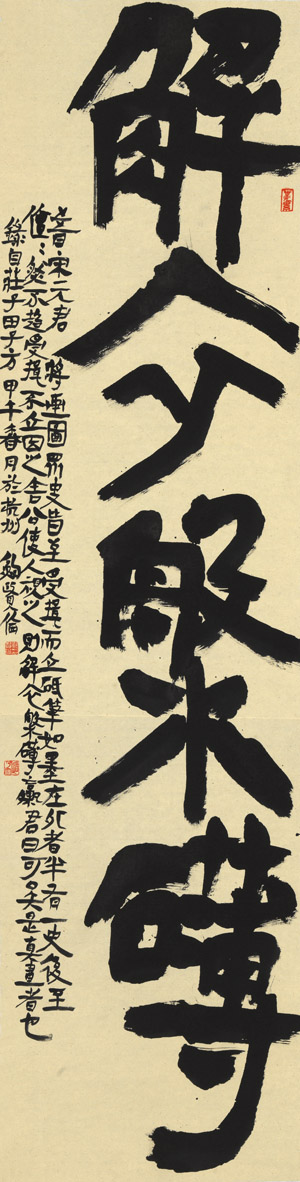 解衣槃礴
昔宋元君將畫圖眾史皆至受揖而立砥筆和墨在外者半有一史後至
儃々然不趨受揖不立因之舍公使人視之則解衣槃礴臝君曰可矣是真畫者也
錄自莊子田子方 甲午春月於杭州 鮑賢倫